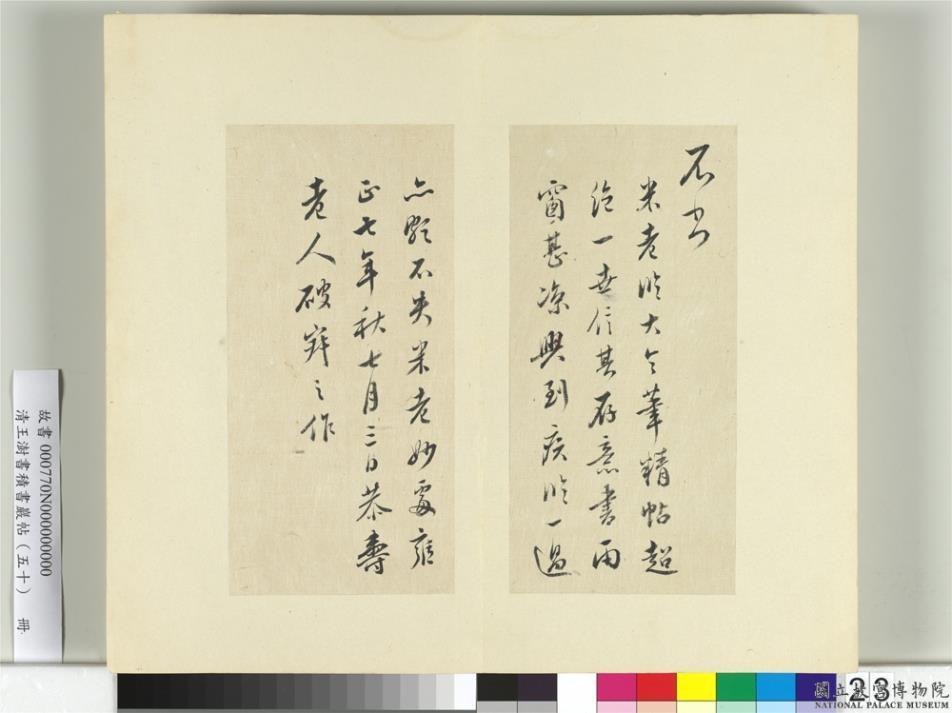 不書
米老臨大令華精帖超
絕一世信其存意書雨
窗甚涼興到疾臨一過
亦頗不失米老妙處雍
正七年秋七月三日恭壽
老人破穽之作
故書 000770N000000000
清王澍書積書巖帖（五十） 冊
23
國立故宮博物院
NATIONAL PALACE MUSEUM